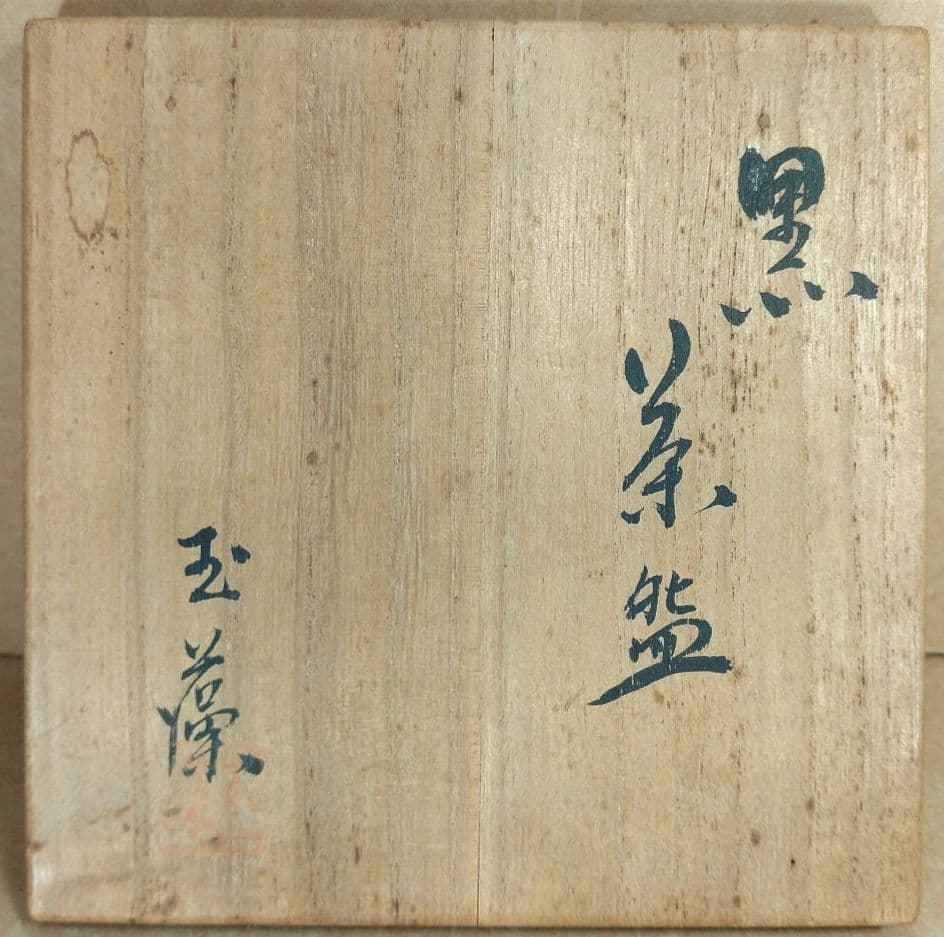 黒茶盌
玉藻